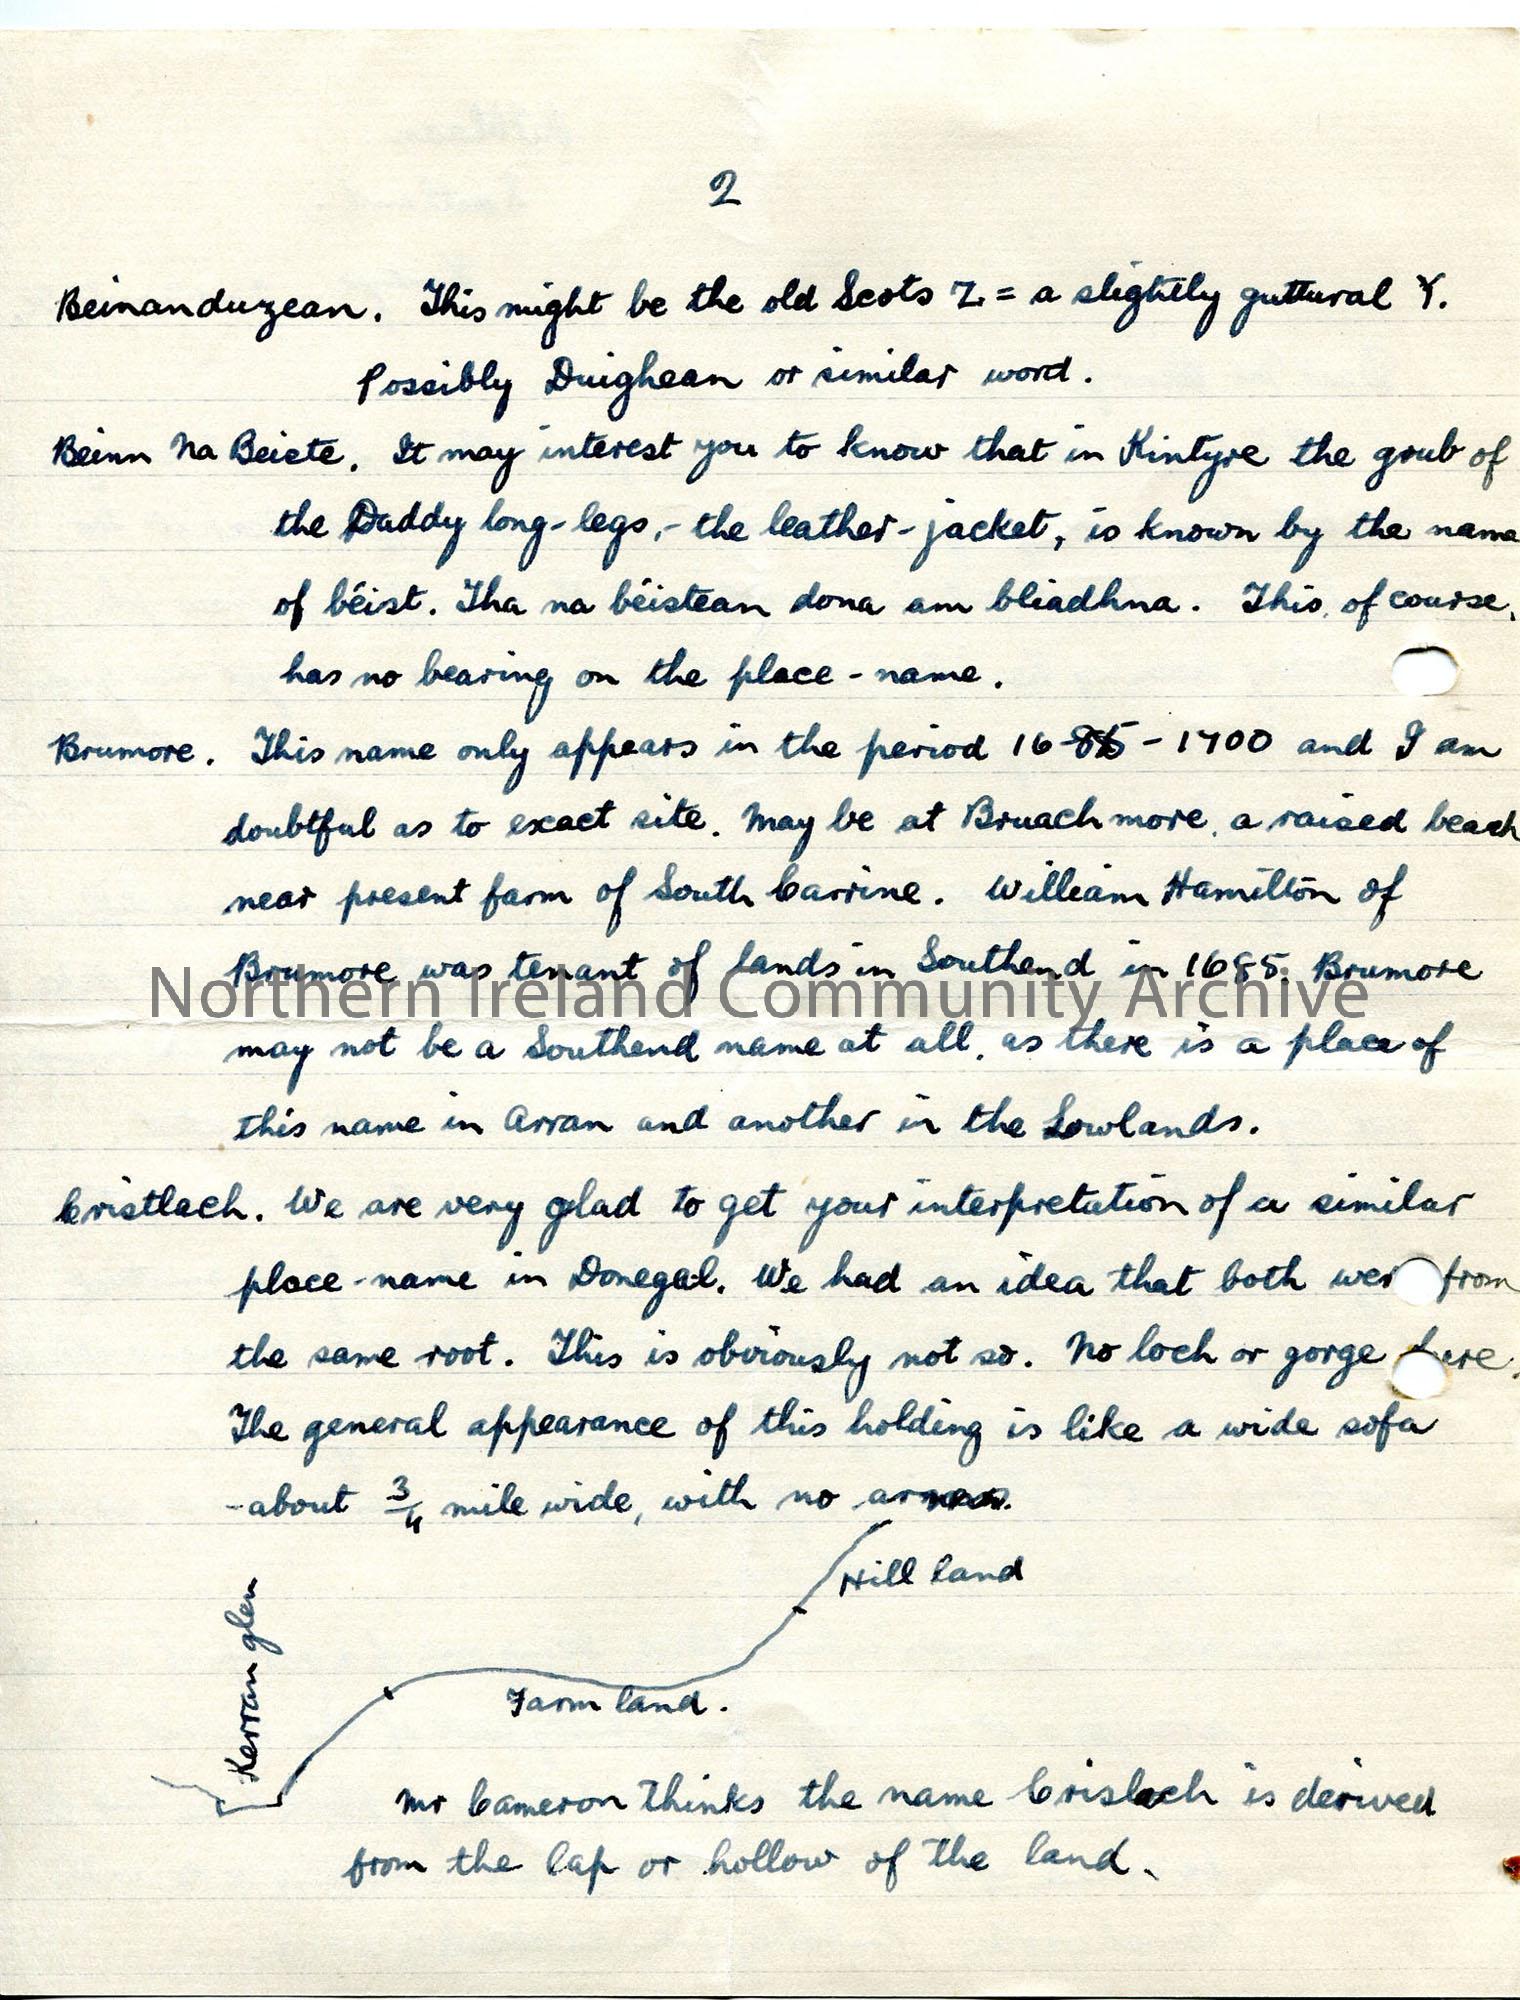 2
Beinanduzean. This might be the old Scots Z = a slightly guttural Y.
Possibly Duighean or similar word.
Beinn Na Beiste. It may interest you to know that in Kintyre the grub of
the Daddy long-legs, - the leather-jacket, is known by the name
of béist. Tha na béistean dona am bliadhna. This, of course,
has no bearing on the place-name.
Brumore. This name only appears in the period 1685 - 1700 and I am
doubtful as to exact site. May be at Bruachmore, a raised beach
near present farm of South Carrine. William Hamilton of
Brumore was tenant of lands in Southend in 1685. Brumore
Northern Ireland Community Archive
may not be a Southend name at all, as there is a place of
this name in Arran and another in the Lowlands.
Cristlach. We are very glad to get your interpretation of a similar
place-name in Donegal. We had an idea that both wer from
the same root. This is obviously not so. No loch or gorge here.
The general appearance of this holding is like a wide sofa
- about 3/4 mile wide, with no arms.
Hill land
Kerran glen
Farm land.
Mr Cameron thinks the name Crislach is derived
from the lap or hollow of the land.